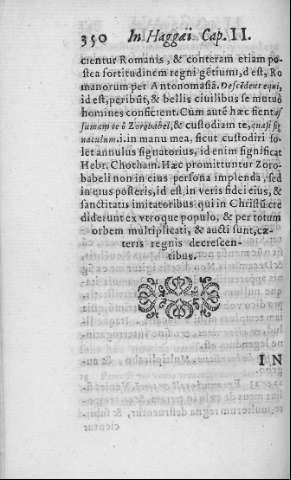 350 In Haggæi Cap. II.
cientur Romanis, & conteram etiam po-
stea fortitudinem regni gētium, d est, Ro
manorum per Antonomasiā. Descēdent equi,
id est, peribūt, & bellis ciuilibus se mutuò
homines conficient. Cùm autē hæc fient as
sumam te ô Zorobabel, & custodiam te, quasi sig
naculum. i. in manu mea, sicut custodiri so-
let annulus signatorius, id enim significat
Hebr. Chotham. Hæc promittuntur Zoro-
babeli non in eius persona implenda, sed
in eius posteris, id est, in veris fidei eius, &
sanctitatis imitatoribus qui in Christū cre
diderunt ex vtroque populo, & per totum
orbem multiplicati, & aucti sunt, cæ-
teris regnis decrescen-
tibus.
IN